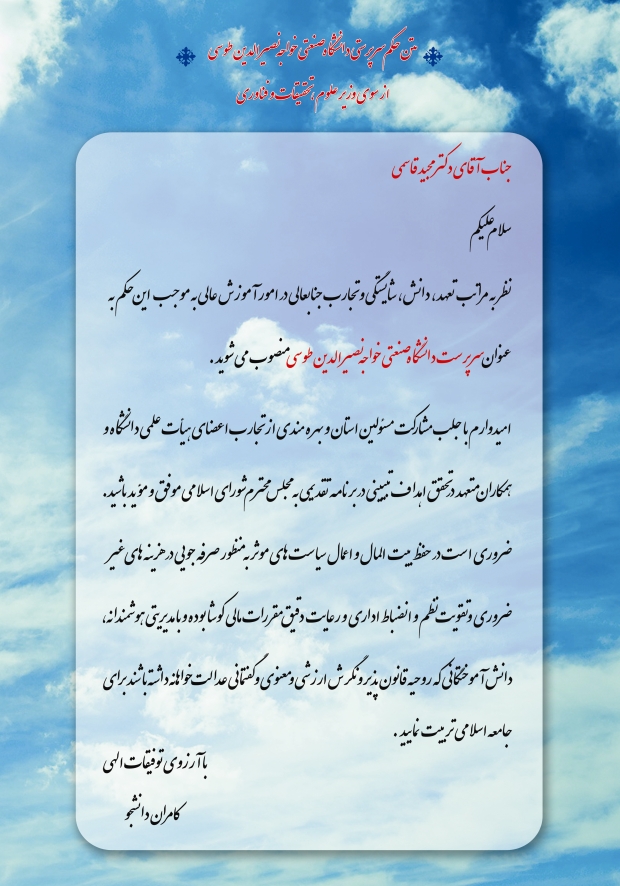 متن حکم سرپرستی دانشگاه صنعتی خواجه نصیرالدین طوسی
از سوی وزیر علوم، تحقیقات و فناوری
جناب آقای دکتر مجید قاسمی
سلام علیکم
نظر به مراتب تعهد، دانش، شایستگی و تجارب جنابعالی در امور آموزش عالی به موجب این حکم به
عنوان سرپرست دانشگاه صنعتی خواجه نصیرالدین طوسی منصوب می شوید.
امیدوارم با جلب مشارکت مسئولین استان و بهره مندی از تجارب اعضای هیأت علمی دانشگاه و
همکاران متعهد در تحقق اهداف تبیینی در برنامه تقدیمی به مجلس محترم شورای اسلامی موفق و مؤید باشید.
ضروری است در حفظ بیت المال و اعمال سیاست های موثر به منظور صرفه جویی در هزینه های غیر
ضروری و تقویت نظم و انضباط اداری و رعایت دقیق مقررات مالی کوشا بوده و با مدیریتی هوشمندانه،
دانش آموختگانی که روحیه قانون پذیر و نگرش ارزشی و معنوی و گفتمانی عدالت خواهانه داشته باشند برای
جامعه اسلامی تربیت نمایید.
با آرزوی توفیقات الهی
کامران دانشجو